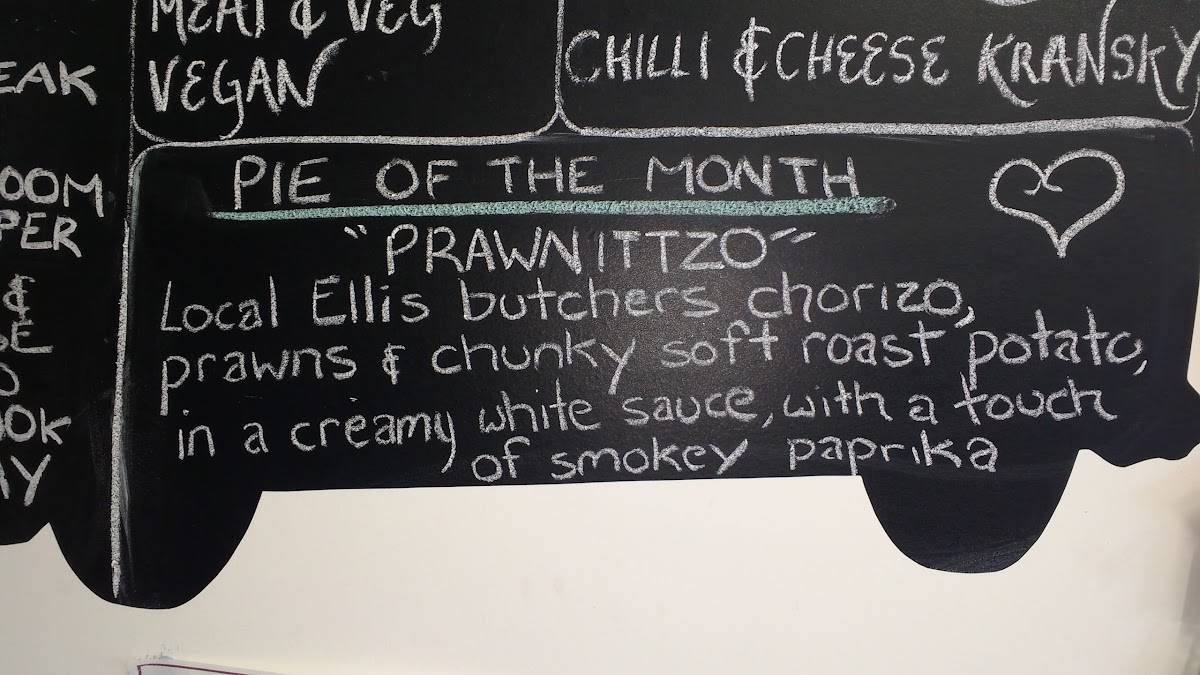 MEAT & VEG
VEGAN
CHILLI & CHEESE KRANSKY
PIE OF THE MONTH
"PRAWNITTZO"
Local Ellis butchers chorizo,
prawns & chunky soft roast potato,
in a creamy white sauce, with a touch
of smokey paprika